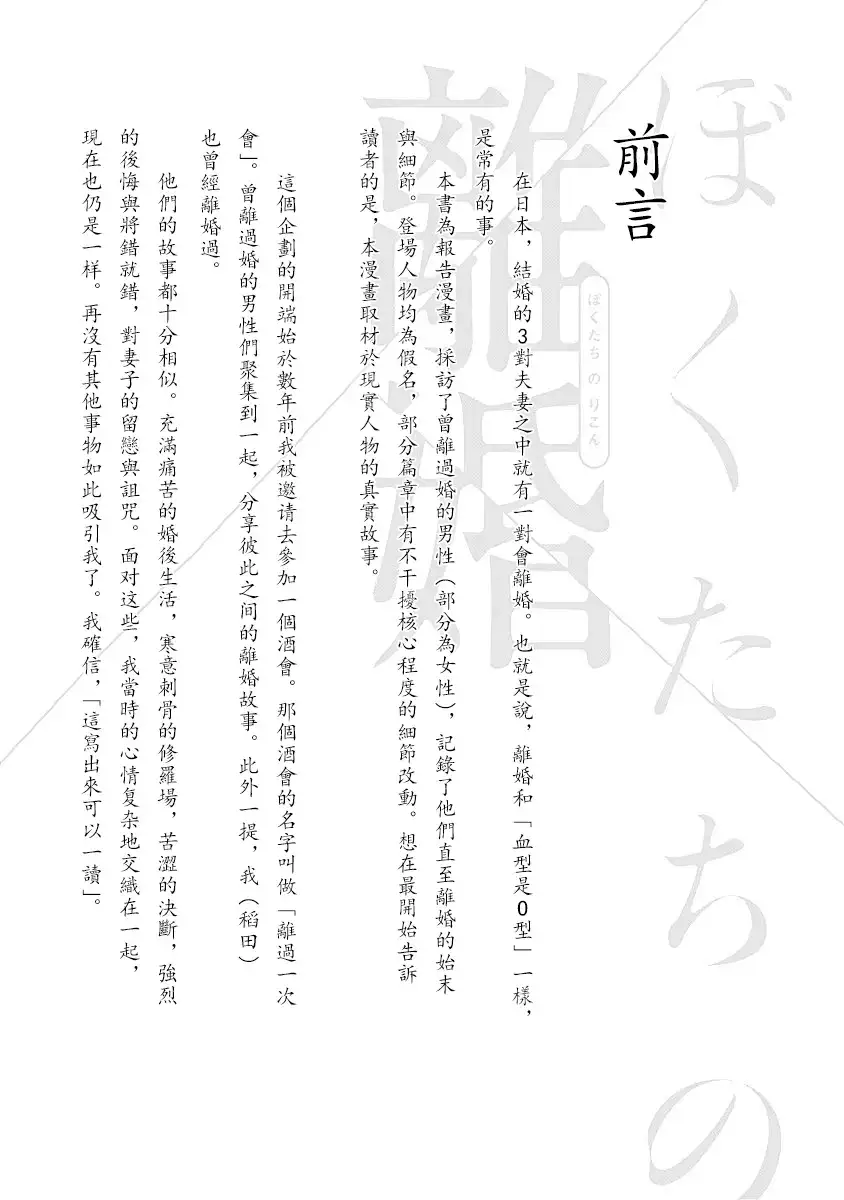 ぼくたちの
離婚
ぼくたち の りこん
前言
在日本，結婚的3對夫妻之中就有一對會離婚。也就是說，離婚和「血型是O型」一樣，
是常有的事。
本書為報告漫畫，採訪了曾離過婚的男性（部分為女性），記錄了他們直至離婚的始末
與細節。登場人物均為假名，部分篇章中有不干擾核心程度的細節改動。想在最開始告訴
讀者的是，本漫畫取材於現實人物的真實故事。
這個企劃的開端始於數年前我被邀请去參加一個酒會。那個酒會的名字叫做「離過一次
會」。曾離過婚的男性們聚集到一起，分享彼此之間的離婚故事。此外一提，我（稻田）
也曾經離婚過。
他們的故事都十分相似。充滿痛苦的婚後生活，寒意刺骨的修羅場，苦澀的決斷，強烈
的後悔與將錯就錯，對妻子的留戀與詛咒。面对这些，我當時的心情复杂地交織在一起，
現在也仍是一樣。再沒有其他事物如此吸引我了。我確信，「這寫出來可以一讀」。